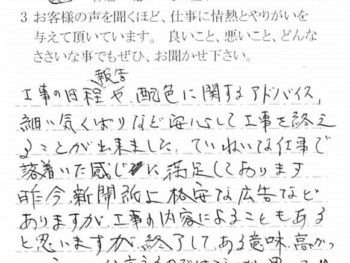 3 お客様の声を聞くほど、仕事に情熱とやりがいを
与えて頂いています。 良いこと、悪いこと、どんな
ささいな事でもぜひ、お聞かせ下さい。
報告
工事の日程や、配色に関するアドバイス、
細い気くばりなど安心して工事を終え
ることが出来ました。ていねいな仕事で
落着いた感じに満足しております
昨今、新聞紙上格安な広告など
ありますが、工事の内容によることもある
と思いますが、終了して、ある意味、高かっ